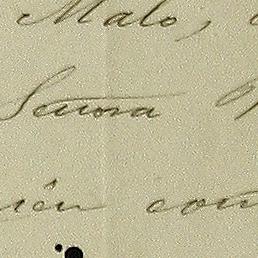 Malo,
Señora
ién con